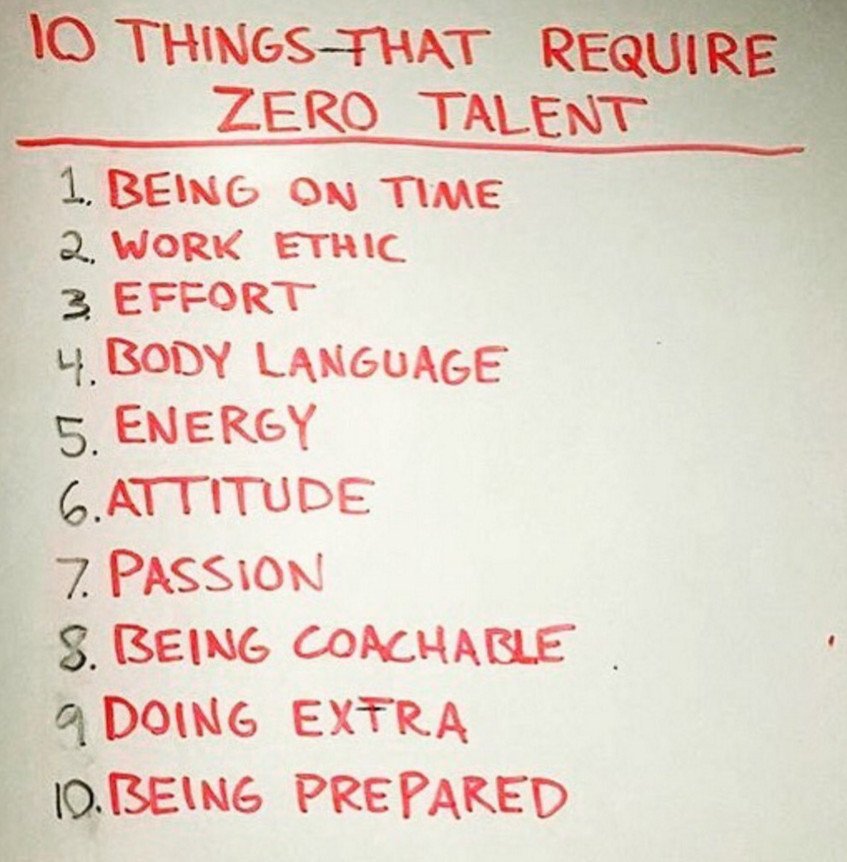 10 THINGS THAT REQUIRE
ZERO TALENT
1. BEING ON TIME
2. WORK ETHIC
3. EFFORT
4. BODY LANGUAGE
5. ENERGY
6. ATTITUDE
7. PASSION
8. BEING COACHABLE
9 DOING EXTRA
10. BEING PREPARED